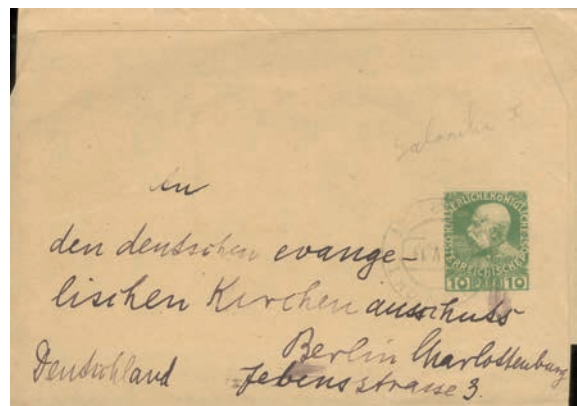 Saloniki
An
den deutschen evange-
lischen Kirchenausschuss
Berlin Charlottenburg
Deutschland Jebensstrasse 3.
KAISERLICHEKÖNIGLICHE
ÖSTERREICHISCHE POST
10 PARA 10